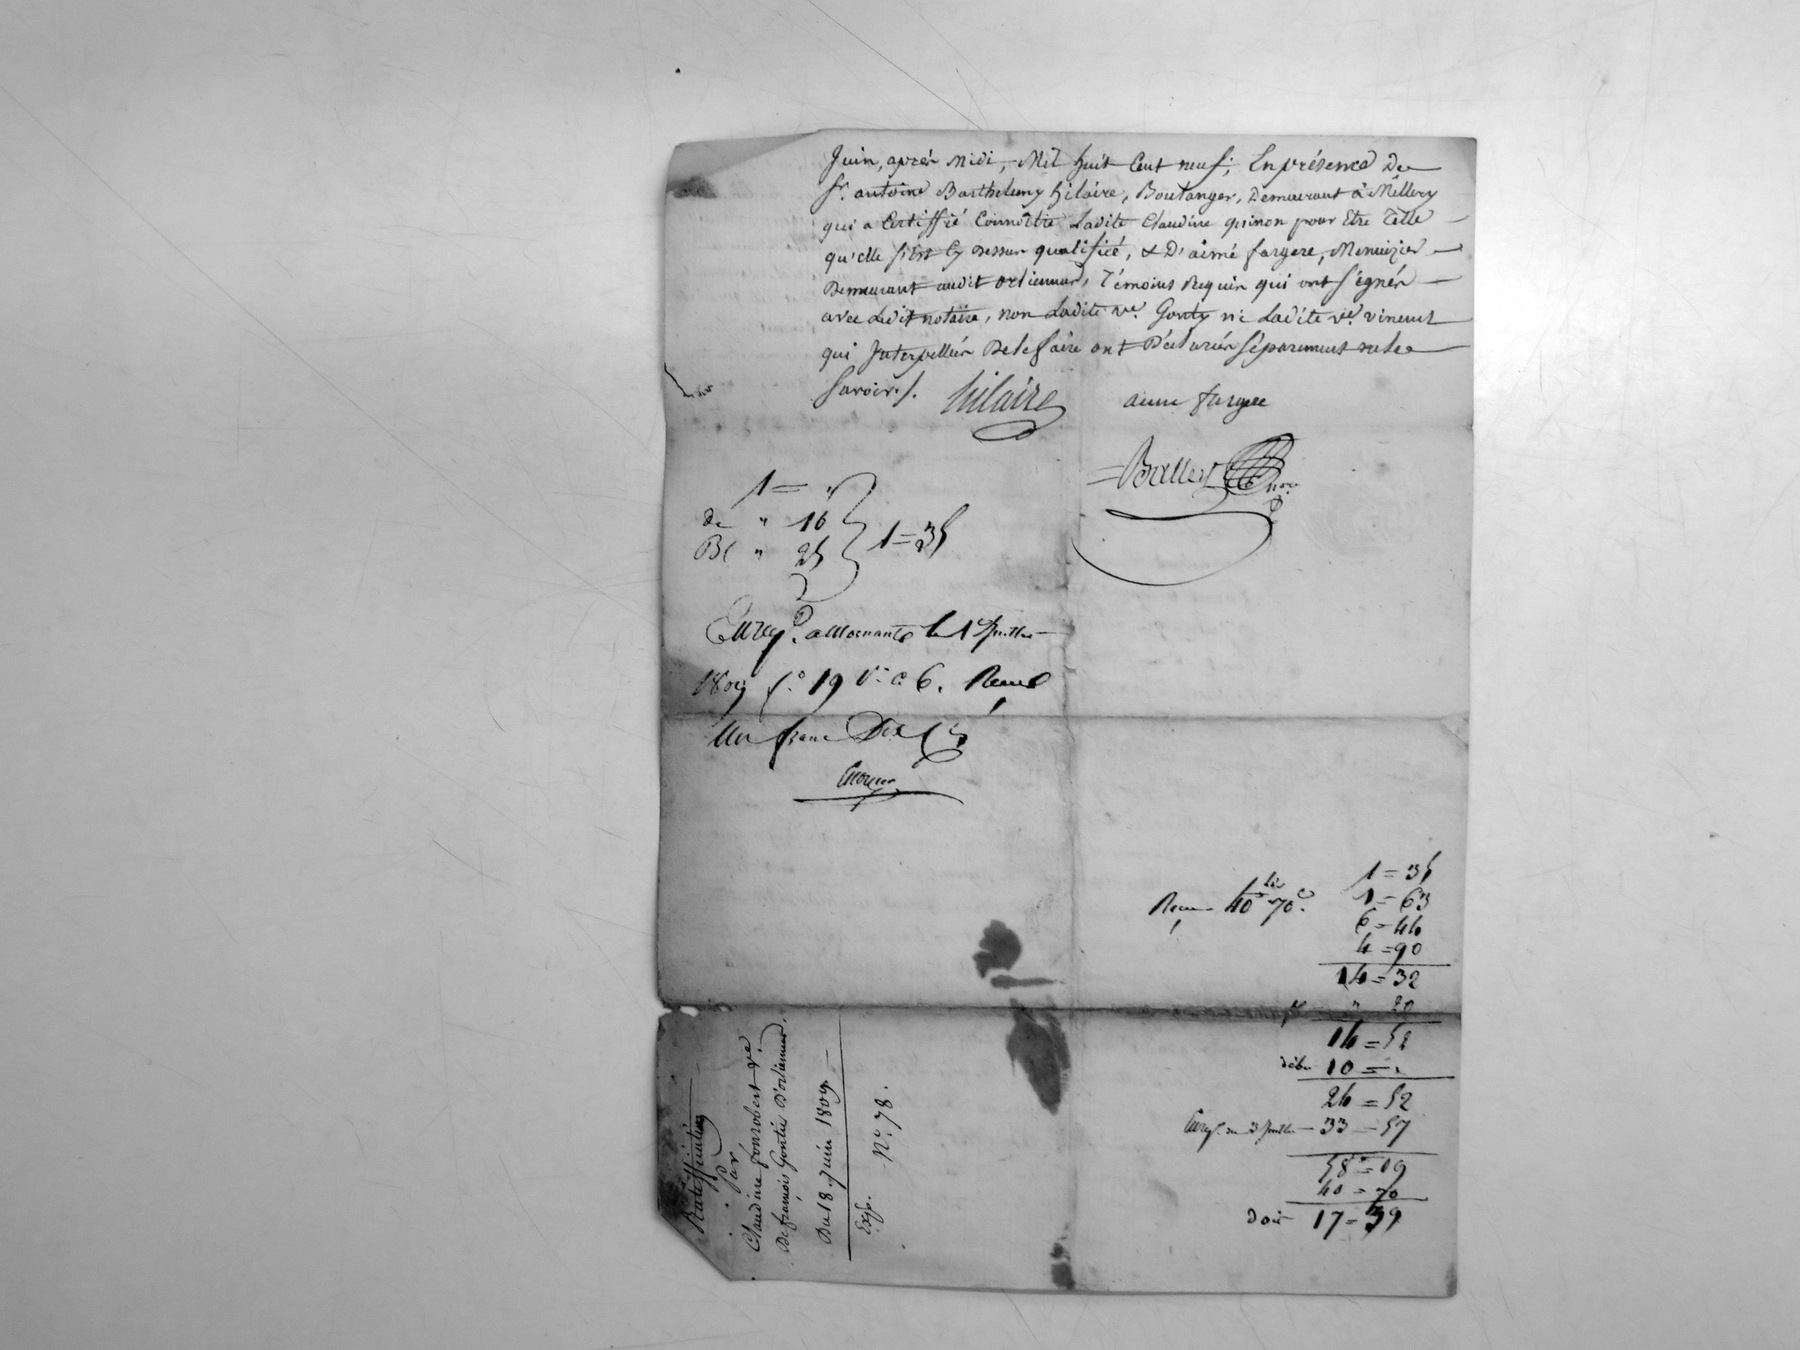 Juin, après midi, Mil huit Cent neuf, En présence De
Sr. antoine Barthelemy hilaire, Boulanger, Demeurant à Millery
qui a Certiffié Connoître Ladite Claudine guinon pour Etre Telle
qu'elle s'est Cy dessus qualifiée, & D'aimé fargere, Menuizier
Demeurant audit orlienned, Témoins Requis qui ont signés
avec Ledit notaire, non Ladite ve. Gontis ni Ladite ve. vincent
qui Interpellées De le faire ont Déclarées séparement ne le
savoir./.
hilaire
aimé fargere
Ballet nore
1 = "
de " 16
Bl " 25
1 = 35
Enregd. à Mornant le 1er Juillet
1809 fo. 19 Vo. C. 6. Recu
Un franc Dix
Recu 40 70c.
1 = 35
1 = 63
6 = 44
4 = 90
14 = 32
" 20
14 = 52
10 =
24 = 52
Enreg. du 3 Juillet 33 = 57
58 = 09
40 = 70
doit 17 = 39
Ratiffication
Par
Claudine fonrobert ve
De françois Gontis D'orlienned.
Du 18 Juin 1809.
Exp.
No. 78.